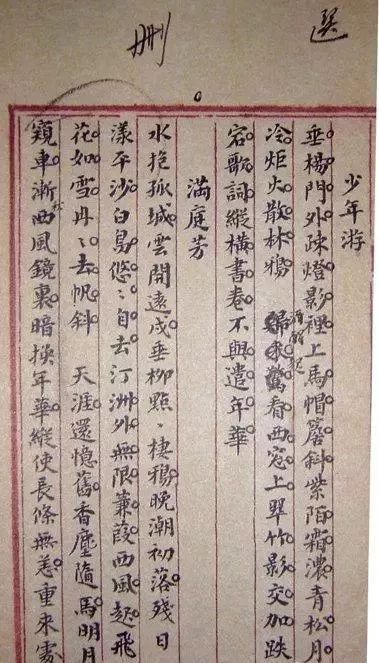 選
删
少年游
垂楊門外疎燈影裡上馬帽簷斜紫陌霜濃青松月
冷炬火散林鴉 歸來驚看西窓上翠竹影交加跌
酒醒起
宕歌詞縱橫書卷不與遣年華
滿庭芳
水抱孤城雲開遠戍垂柳點〻棲鴉晚潮初落殘日
漾平沙白鳥悠〻自去汀洲外無限蒹葭西風起飛
花如雪冉〻去帆斜 天涯還憶舊香塵隨馬明月
窺車漸西風鏡裏暗換年華縱使長條無恙重來處